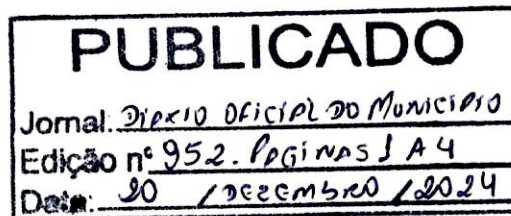 PUBLICADO
Jornal: Diário Oficial do Município
Edição nº 952. Paginas 1 A 4
Data: 20 / Dezembro / 2024